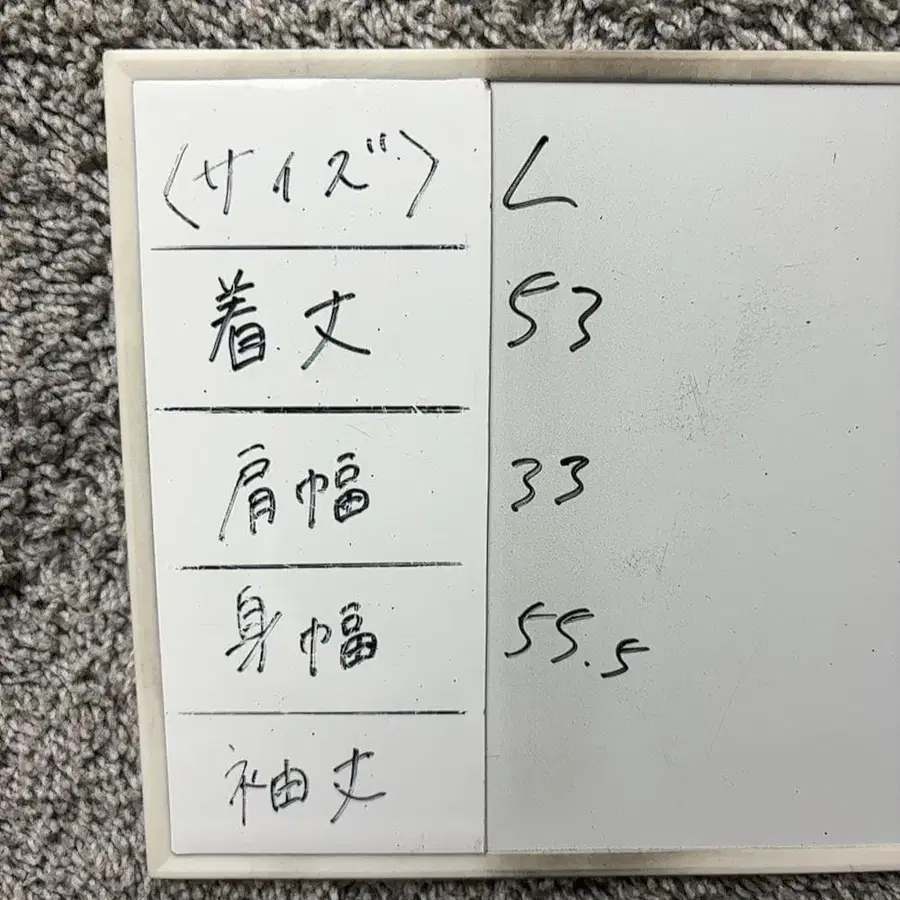 〈サイズ〉 L
着丈 53
肩幅 33
身幅 55.5
袖丈